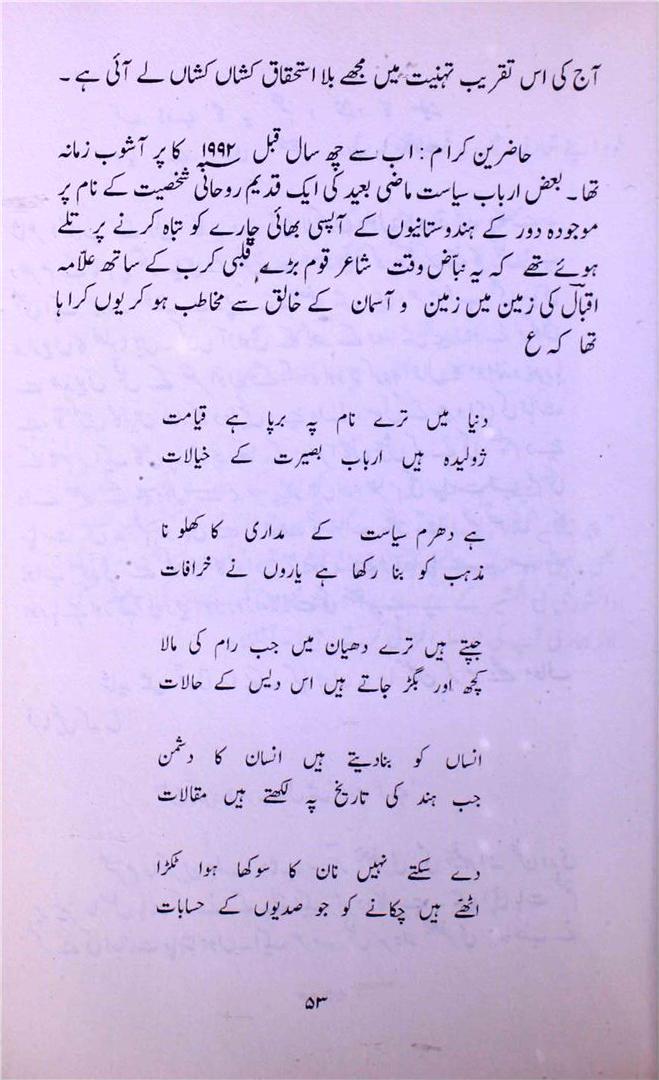 آج کی اس تقریب تہنیت میں مجھے بلا استحقاق کشاں کشاں لے آئی ہے ۔
حاضرین کرام : اب سے چھ سال قبل ۱۹۹۲ کا پر آشوب زمانہ
تھا ۔ بعض ارباب سیاست ماضی بعید کی ایک قدیم روحانی شخصیت کے نام پر
موجودہ دور کے ہندوستانیوں کے آپسی بھائی چارے کو تباہ کرنے پر تلے
ہوئے تھے کہ یہ نبّاض وقت شاعر قوم بڑے قلبی کرب کے ساتھ علامہ
اقبالؔ کی زمین میں زمین و آسمان کے خالق سے مخاطب ہو کر یوں کراہا
تھا کہ ع
دنیا میں ترے نام پہ برپا ہے قیامت
ژولیدہ ہیں ارباب بصیرت کے خیالات
ہے دھرم سیاست کے مداری کا کھلونا
مذہب کو بنا رکھا ہے یاروں نے خرافات
جپتے ہیں ترے دھیان میں جب رام کی مالا
کچھ اور بگڑ جاتے ہیں اس دیس کے حالات
انساں کو بنادیتے ہیں انسان کا دشمن
جب ہند کی تاریخ پہ لکھتے ہیں مقالات
دے سکتے نہیں نان کا سوکھا ہوا ٹکڑا
اٹھے ہیں چکانے کو جو صدیوں کے حسابات
۵۳